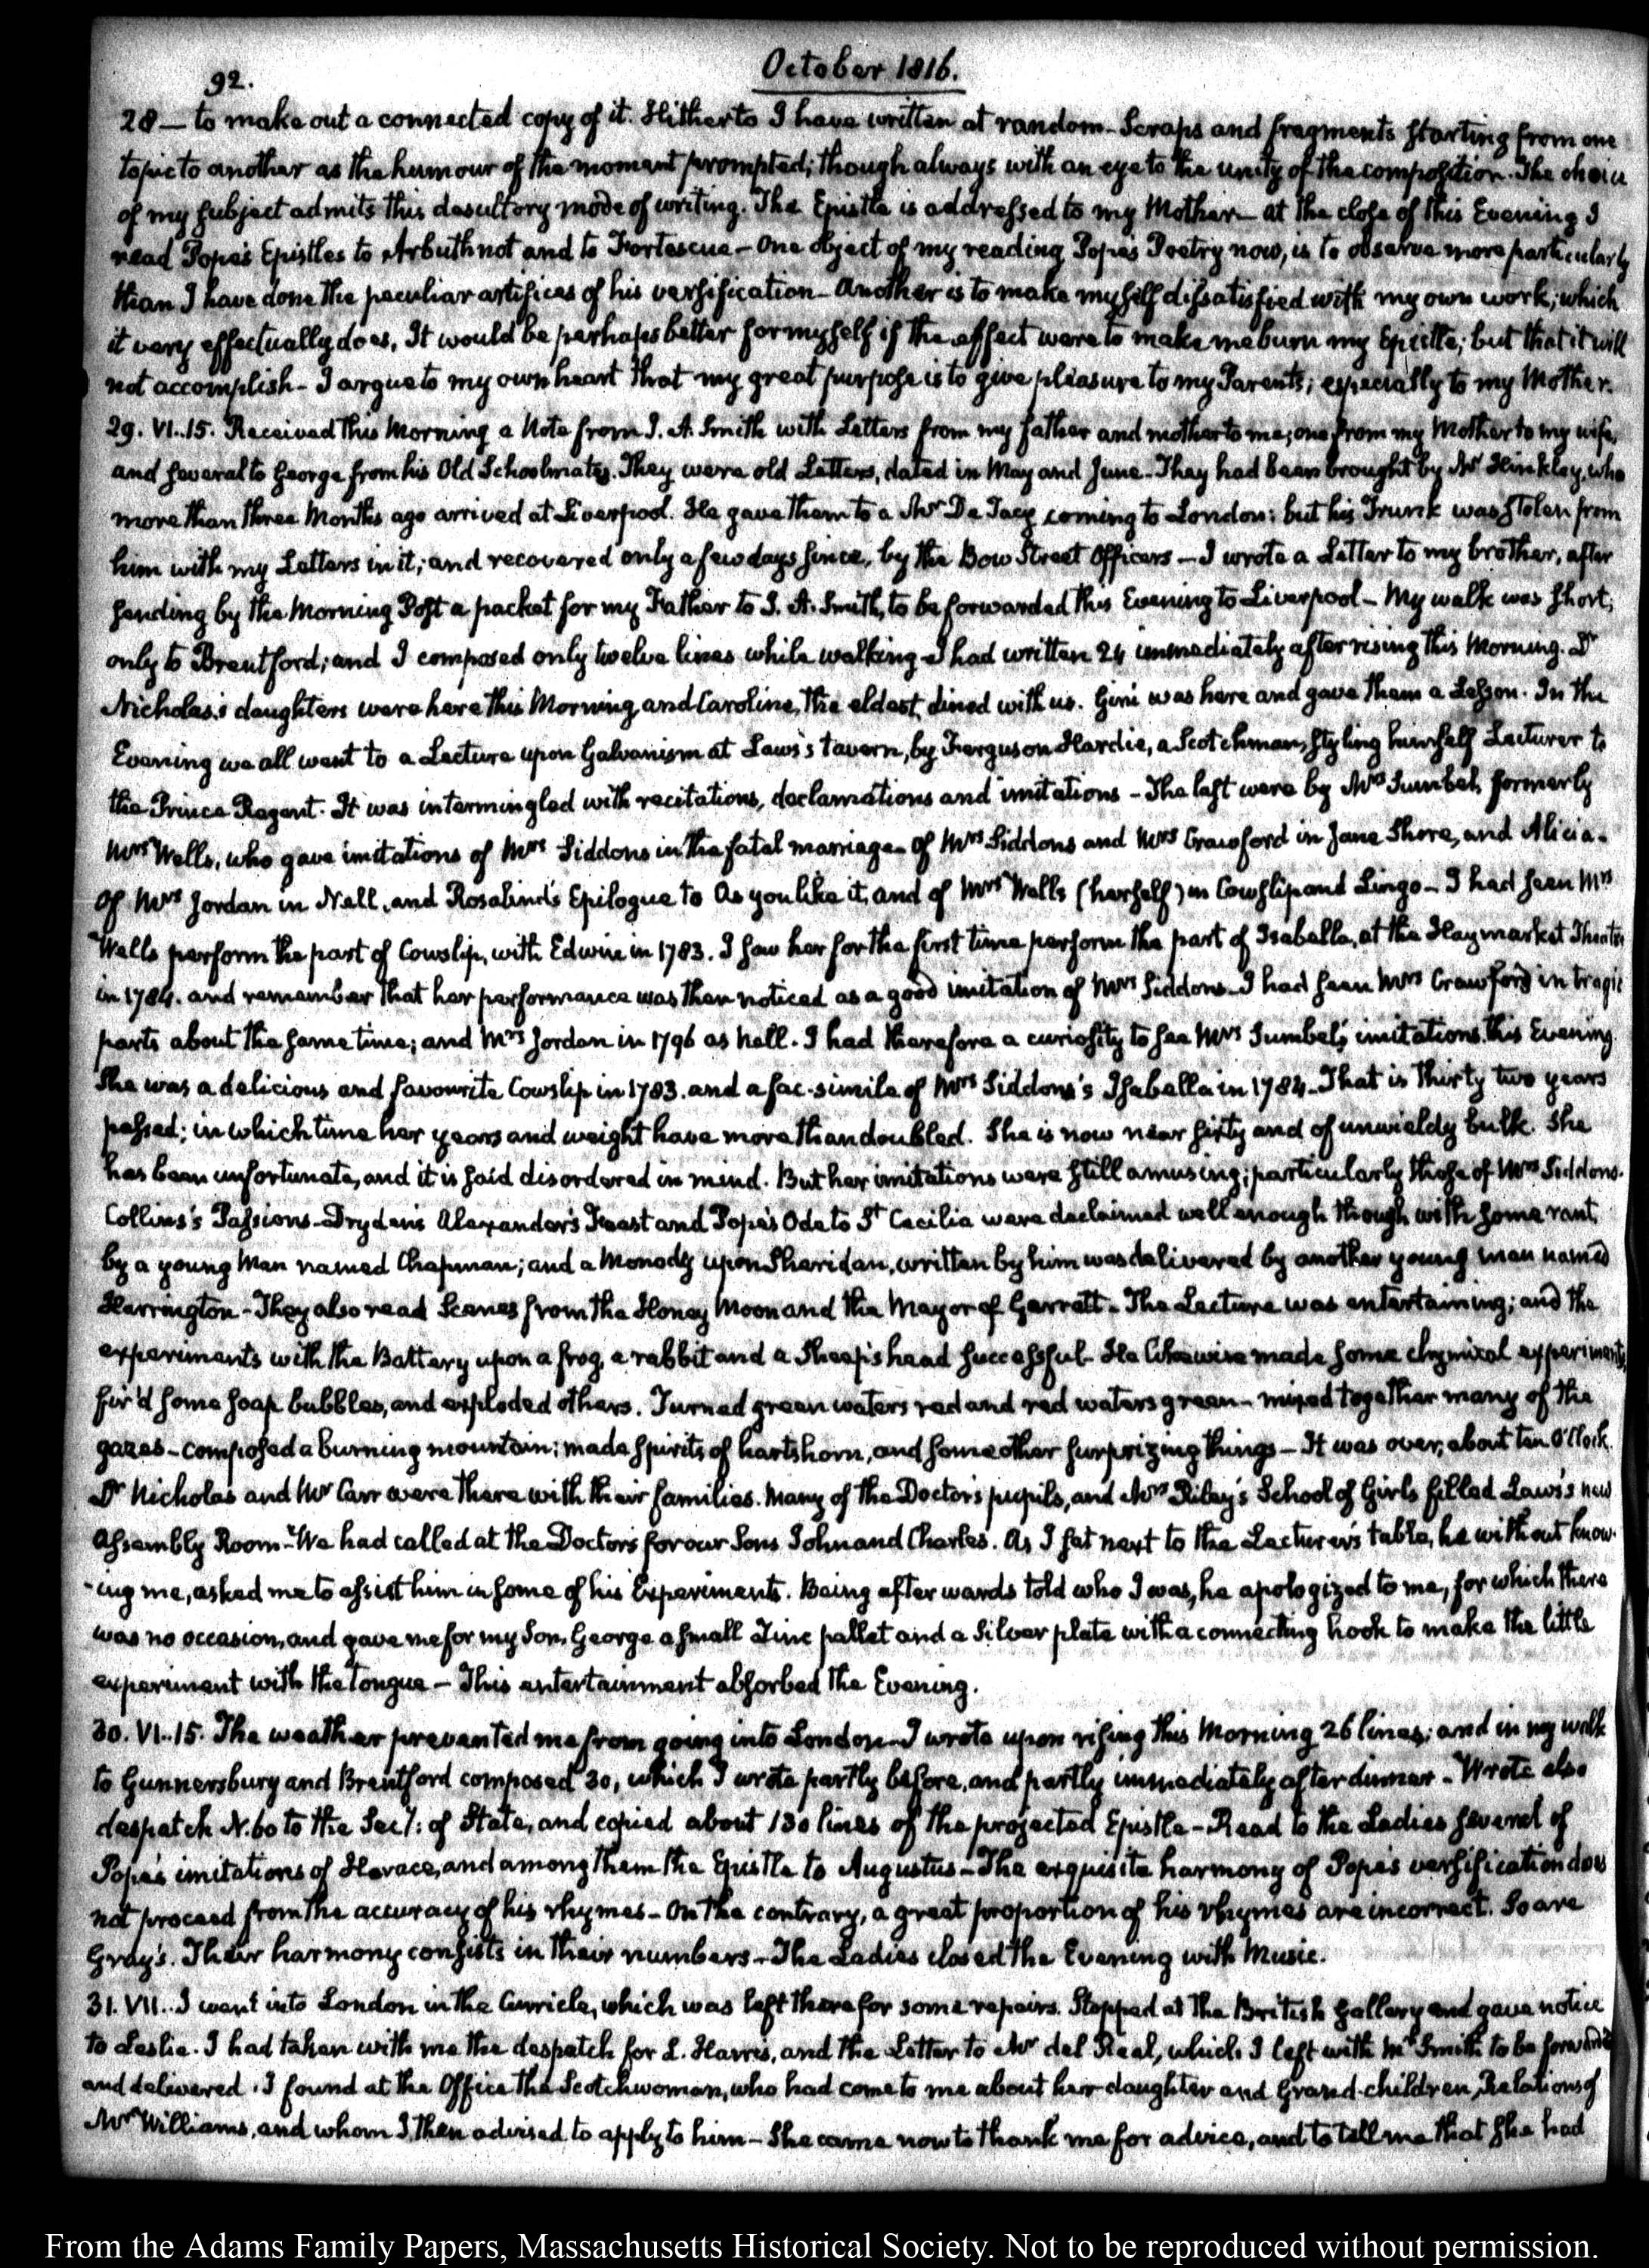 92.
October 1816.
28 — to make out a connected copy of it. Hitherto I have written at random - Scraps and fragments starting from one
topic to another as the humour of the moment prompted; though always with an eye to the unity of the composition. The choice
of my subject admits this desultory mode of writing. The Epistle is addressed to my Mother — at the close of this Evening I
read Pope's Epistles to Arbuthnot and to Fortescue — One object of my reading Pope's Poetry now, is to observe more particularly
than I have done the peculiar artifices of his versification - Another is to make myself dissatisfied with my own work; which
it very effectually does. It would be perhaps better for myself if the effect were to make me burn my Epistle; but that it will
not accomplish - I argue to my own heart that my great purpose is to give pleasure to my Parents; especially to my Mother.
29. VI..15. Received this Morning a Note from J. A. Smith with Letters from my father and mother to me; one from my Mother to my wife,
and several to George from his Old Schoolmates. They were old Letters, dated in May and June - They had been brought by Mr Hinkley, who
more than three Months ago arrived at Liverpool. He gave them to a Mr De Tacy coming to London: but his Trunk was stolen from
him with my Letters in it; and recovered only a few days since, by the Bow Street Officers — I wrote a Letter to my brother, after
sending by the Morning Post a packet for my Father to J. A. Smith, to be forwarded this Evening to Liverpool - My walk was short;
only to Brentford; and I composed only twelve lines while walking - I had written 24 immediately after rising this Morning. Dr
Nicholas's daughters were here this Morning, and Caroline, the eldest, dined with us. Gini was here and gave them a Lesson. In the
Evening we all went to a Lecture upon Galvanism at Laws's tavern, by Ferguson Hardie, a Scotchman, styling himself Lecturer to
the Prince Regent. It was intermingled with recitations, declamations and imitations - The last were by Mrs Sumbel, formerly
Mrs Wells, who gave imitations of Mrs Siddons in the fatal marriage - of Mrs Siddons and Mrs Crawford in Jane Shore, and Alicia -
Of Mrs Jordan in Nell, and Rosalind's Epilogue to As you like it, and of Mrs Wells (herself) in Cowslip and Lingo - I had seen Mrs
Wells perform the part of Cowslip, with Edwin in 1783. I saw her for the first time perform the part of Isabella, at the Haymarket Theatre
in 1784. and remember that her performance was then noticed as a good imitation of Mrs Siddons - I had seen Mrs Crawford in tragic
parts about the same time; and Mrs Jordan in 1796 as Nell. I had therefore a curiosity to see Mrs Sumbel's imitations this Evening.
She was a delicious and favourite Cowslip in 1783. and a fac-simile of Mrs Siddons's Isabella in 1784 - That is thirty two years
passed; in which time her years and weight have more than doubled. She is now near sixty and of unwieldy bulk. She
has been unfortunate, and it is said disordered in mind. But her imitations were still amusing; particularly those of Mrs Siddons.
Collins's Passions - Dryden's Alexander's Feast and Pope's Ode to St Cecilia were declaimed well enough though with some rant,
by a young Man named Chapman; and a Monody upon Sheridan, written by him was delivered by another young man named
Harrington - They also read Scenes from the Honey Moon and the Mayor of Garratt - The Lecture was entertaining; and the
experiments with the Battery upon a frog, a rabbit and a Sheep's head successful - He likewise made some chymical experiments,
fir'd some soap bubbles, and exploded others. Turned green waters red and red waters green - mixed together many of the
gazes - composed a burning mountain; made spirits of hartshorn, and some other surprizing things — It was over, about ten O'Clock.
Dr Nicholas and Mr Carr were there with their families. Many of the Doctor's pupils, and Mrs Riley's School of Girls filled Laws's new
Assembly Room - We had called at the Doctor's for our Sons John and Charles. As I sat next to the Lecturer's table, he without know-
-ing me, asked me to assist him in some of his Experiments. Being afterwards told who I was, he apologized to me, for which there
was no occasion, and gave me for my Son, George a small Zinc pallet and a Silver plate with a connecting hook to make the little
experiment with the tongue — This entertainment absorbed the Evening.
30. VI..15. The weather prevented me from going into London - I wrote upon rising this Morning 26 lines; and in my walk
to Gunnersbury and Brentford composed 30, which I wrote partly before, and partly immediately after dinner - Wrote also
despatch N. 60 to the Secy: of State, and copied about 130 lines of the projected Epistle - Read to the Ladies several of
Pope's imitations of Horace, and among them the Epistle to Augustus - The exquisite harmony of Pope's versification does
not proceed from the accuracy of his rhymes - On the contrary, a great proportion of his rhymes are incorrect. So are
Gray's. Their harmony consists in their numbers - The Ladies closed the Evening with Music.
31. VII.. I went into London in the Curricle, which was left there for some repairs. Stopped at the British Gallery and gave notice
to Leslie. I had taken with me the despatch for L. Harris, and the Letter to Mr del Real, which I left with Mr Smith to be forwarded
and delivered. I found at the Office the Scotchwoman, who had come to me about her daughter and Grand-children, Relations of
Mr Williams, and whom I then advised to apply to him — She came now to thank me for advice, and to tell me that she had
From the Adams Family Papers, Massachusetts Historical Society. Not to be reproduced without permission.